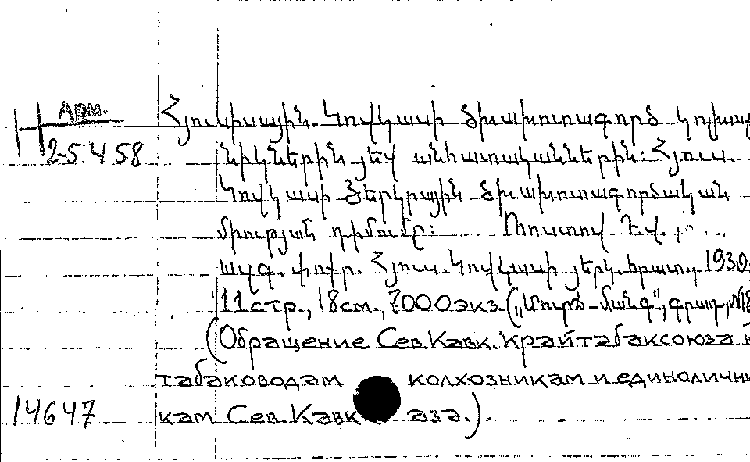 Арм.
2-5458
Հյուսիսային Կովկասի ծխախոտագործ կոլխոզ
նիկներին յեվ անհատականներին: Հյուս.
Կովկասի Յերկրային Ծխախոտագործական
միության դիմումը: Ռոստով
ազգ. փոքր. Հյուս. Կովկասի յերկ. հրատ. 1930.
11 стр., 18 см., 7000 экз.
(Обращение Сев. Кавк. Крайтабаксоюза к
табаководам колхозникам и единолични
14647 кам Сев. Кавказа.).